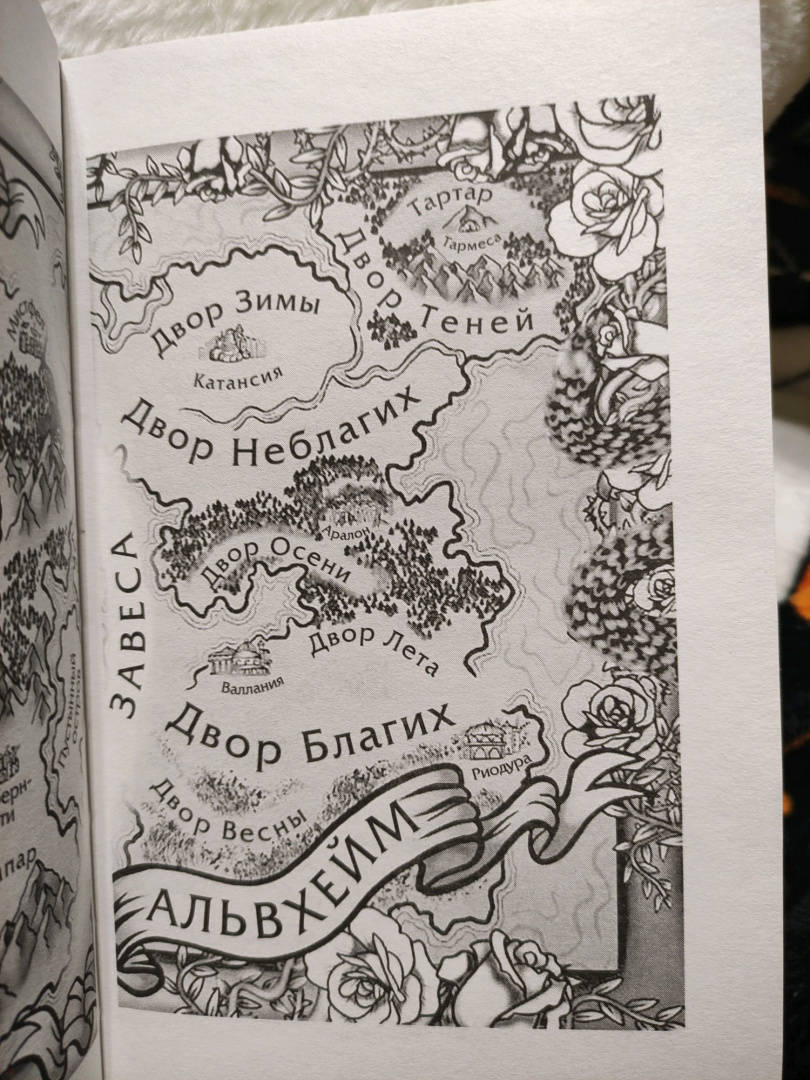 Тартар
Тармеса
Двор Теней
Двор Зимы
Катансия
Двор Неблагих
Аралон
Двор Осени
ЗАВЕСА
Двор Лета
Валлания
Двор Благих
Риодура
Двор Весны
АЛЬВХЕЙМ
Пустынный
остров